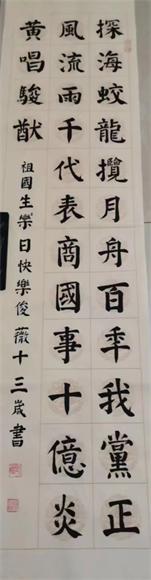 探海蛟龍攬月舟百年我黨正
風流雨千代表商國事十億炎
黃唱駿猷
祖國生樂日快樂俊薇十三歲書